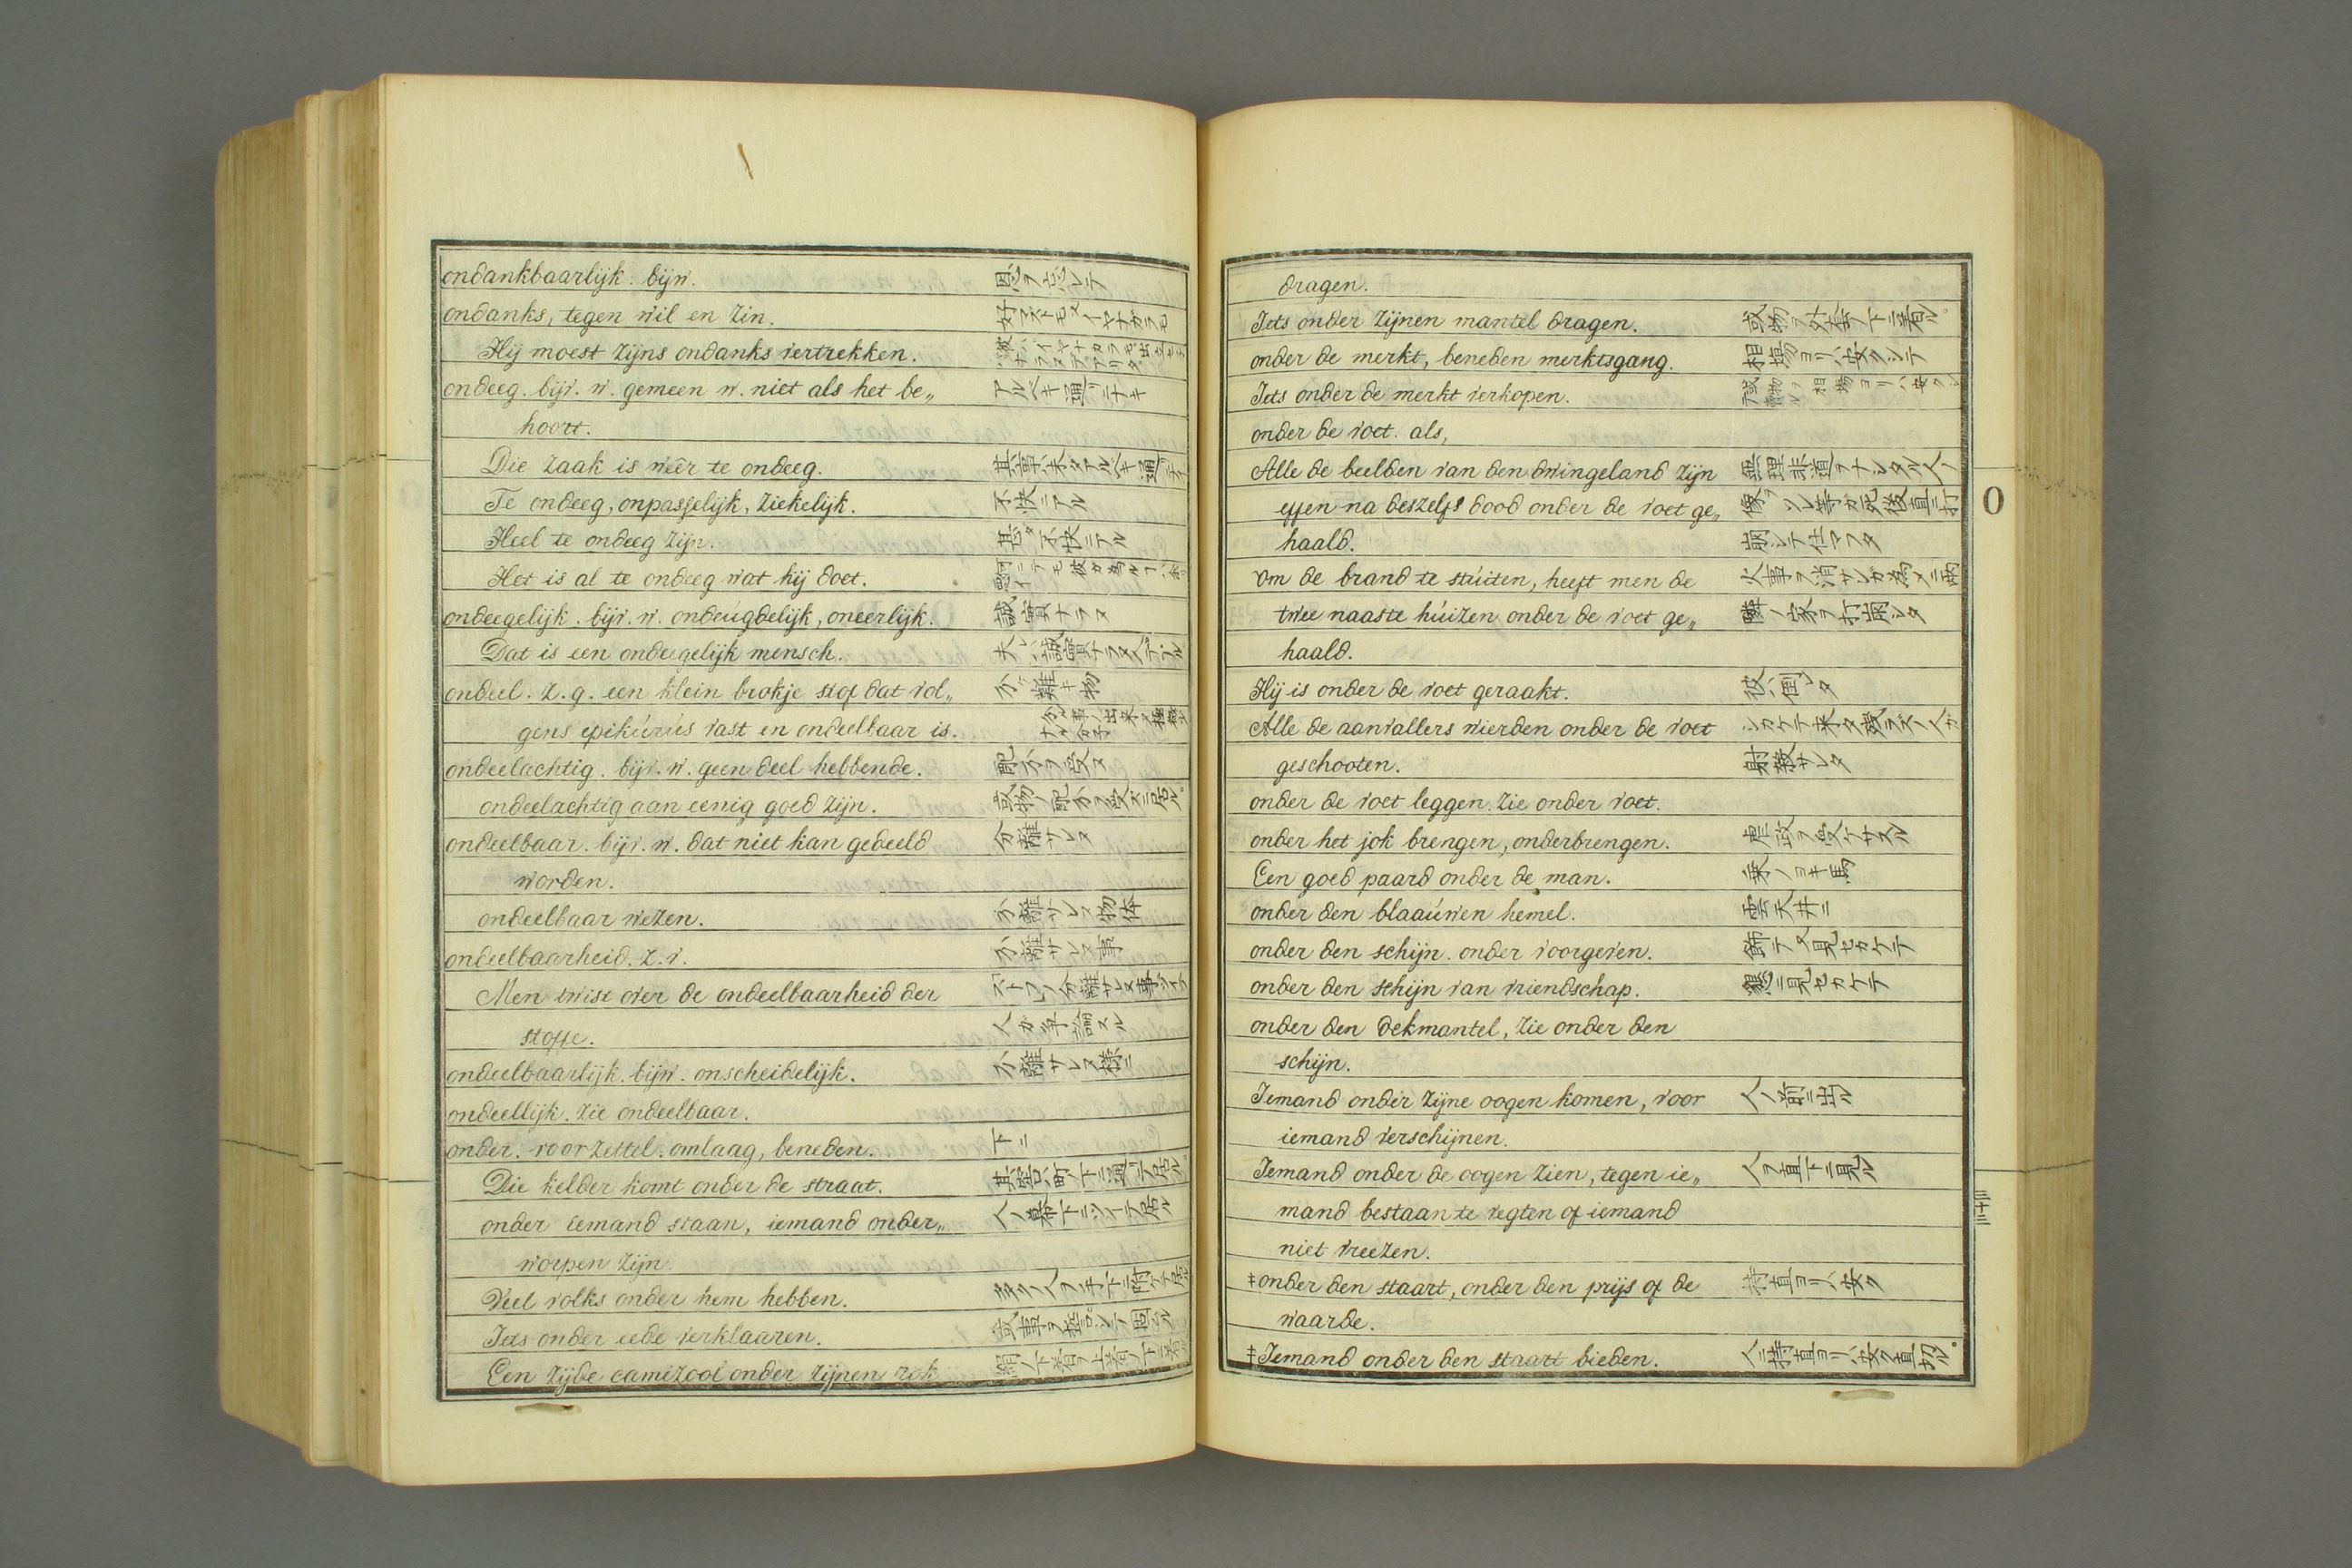 ondankbaarlijk. bijw. 恩ヲ忘レテ
ondanks, tegen wil en zin. 好マズトモ イヤナガラモ
Hij moest zijns ondanks vertrekken. 彼ハイヤナカラモ出立セ子バナラヌデアリタ
ondeeg. bijv. w. gemeen w. niet als het be„ アルベキ通リニナキ
hoort.
Die zaak is wêêr te ondeeg. 其事ハ未タアルベキ通リニナイ
Te ondeeg, onpasselijk, ziekelijk. 不快ニアル
Heel te ondeeg zijn. 甚タ不快ニアル
Het is al te ondeeg wat hij doet.
ondeegelijk. bijv. w. ondeúgdelijk, oneerlijk. 誠實ナラヌ
Dat is een ondeegelijk mensch. 夫レハ誠實ナラヌ人デアル
ondeel. z. g. een klein brokje stof dat vol„ 分ケ難キ物
gens epikúrús vast en ondeelbaar is.
ondeelachtig. bijv. w. geen deel hebbende. 配分ヲ受ヌ
ondeelachtig aan eenig goed zijn. 或物ノ配分ヲ受ズニ居ル
ondeelbaar. bijv. w. dat niet kan gedeeld 分離サレヌ
worden.
ondeelbaar wezen. 分離サレヌ物体
ondeelbaarheid. z. v. 分離サレヌ事
Men twist over de ondeelbaarheid der
stoffe. 人ガ争論スル
ondeelbaarlijk. bijw. onscheidelijk. 分離サレヌ様ニ
ondeellijk. zie ondeelbaar.
onder. voorzettel. omlaag, beneden. 下ニ
Die kelder komt onder de straat. 其窖ハ町ノ下ニ通リテ居ル
onder iemand staan, iemand onder„ 人ノ幕下ニツイテ居ル
worpen zijn.
Veel volks onder hem hebben. 多クノ人ヲ手下ニ附ケテ居ル
Iets onder eede verklaaren.
Een zijde camizool onder zijnen rok
dragen.
Iets onder zijnen mantel dragen. 或物ヲ外套ノ下ニ着ル
onder de merkt, beneden merktsgang. 相場ヨリハ安クシテ
Iets onder de merkt verkopen. 或物ヲ相場ヨリハ安クシテ賣ル
onder de voet. als,
Alle de beelden van den dwingeland zijn 無理非道ヲナシタル人ノ
effen na deszelfs dood onder de voet ge„ 像ヲソレ等ガ死後直ニ打
haald. 崩シテ仕マフタ
Om de brand te stúiten, heeft men de 火事ヲ消サンガ為メニ両
twee naaste húizen onder de voet ge„ 隣ノ家ヲ打崩シタ
haald.
Hij is onder de voet geraakt. 彼ハ倒レタ
Alle de aanvallers wierden onder de voet
geschooten. 射殺サレタ
onder de voet leggen. zie onder voet.
onder het jok brengen, onderbrengen. 虐政ヲ受ケサスル
Een goed paard onder de man. 乗ノヨキ馬
onder den blaaúwen hemel. 雲天井ニ
onder den schijn. onder voorgeven. 飾テ 又見セカケテ
onder den schijn van vriendschap. 懇ニ見セカケテ
onder den dekmantel, zie onder den
schijn.
Iemand onder zijne oogen komen, voor 人ノ前ニ出ル
iemand verschijnen.
Iemand onder de oogen zien, tegen ie„ 人ヲ直下ニ見ル
mand bestaan te vegten of iemand
niet vreezen.
‡onder den staart, onder den prijs of de 持直ヨリハ安ク
waarde.
‡Iemand onder den staart bieden. 人ニ持直ヨリハ安ク直切ル
O